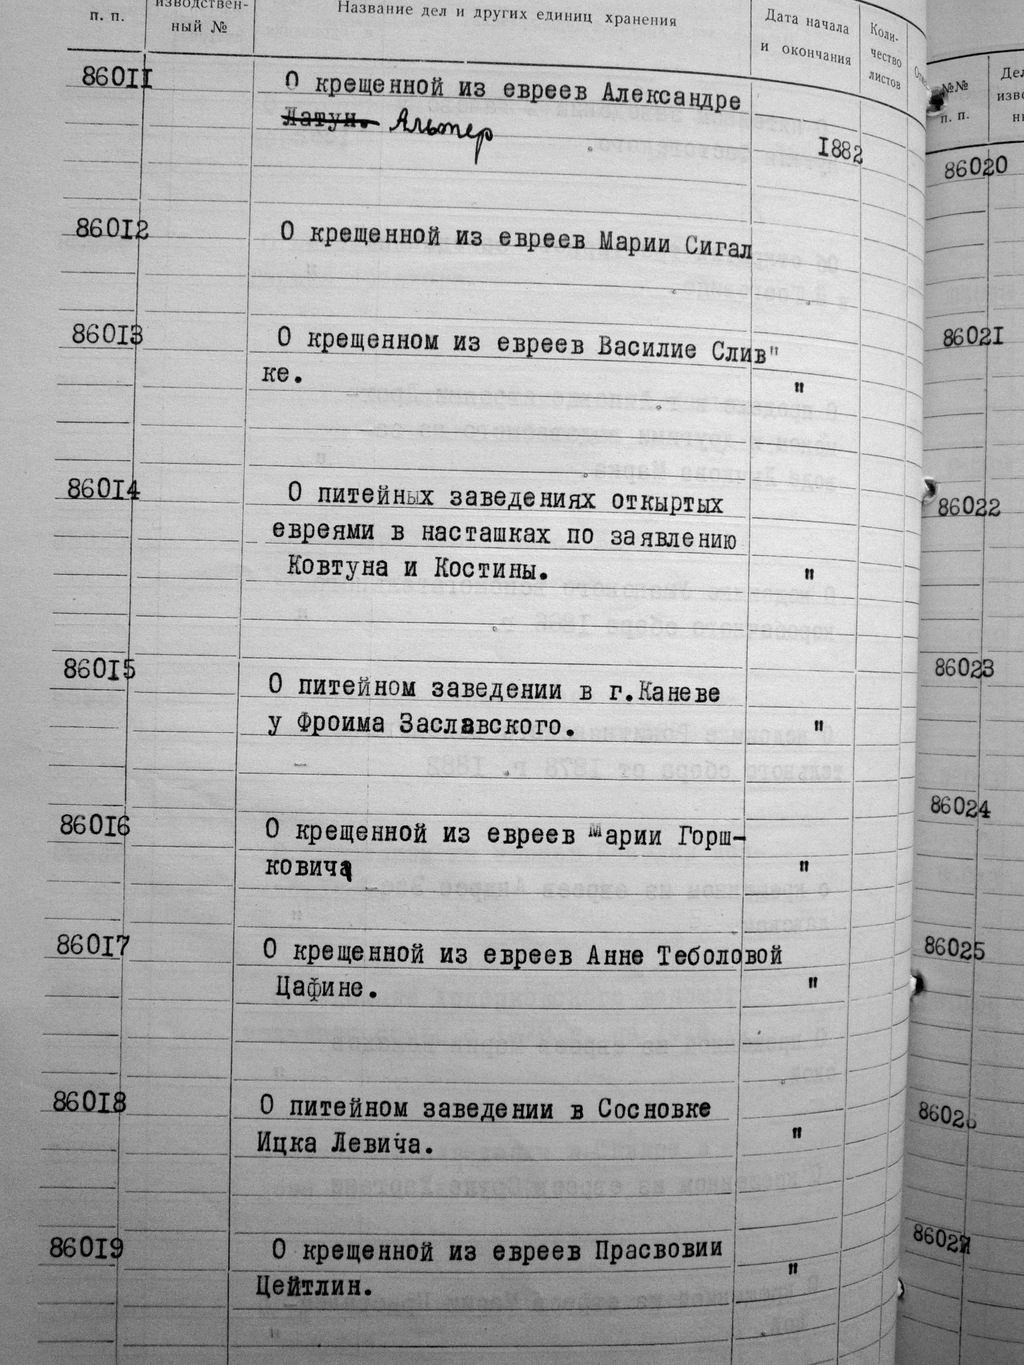 п. п.
изводствен-
ный №
Название дел и других единиц хранения
Дата начала
и окончания
Коли-
чество
листов
86011
О крещенной из евреев Александре
Латун. Альтер
1882
86012
О крещенной из евреев Марии Сигал
86013
О крещенном из евреев Василие Слив"
ке.
"
86014
О питейных заведениях открытых
евреями в насташках по заявлению
Ковтуна и Костины.
"
86015
О питейном заведении в г.Каневе
у Фроима Заславского.
"
86016
О крещенной из евреев Марии Горш-
кович
"
86017
О крещенной из евреев Анне Теболовой
Цафине.
"
86018
О питейном заведении в Сосновке
Ицка Левича.
"
86019
О крещенной из евреев Прасвовии
Цейтлин.
"
№№
п. п.
Дел
изво
86020
86021
86022
86023
86024
86025
86026
86027